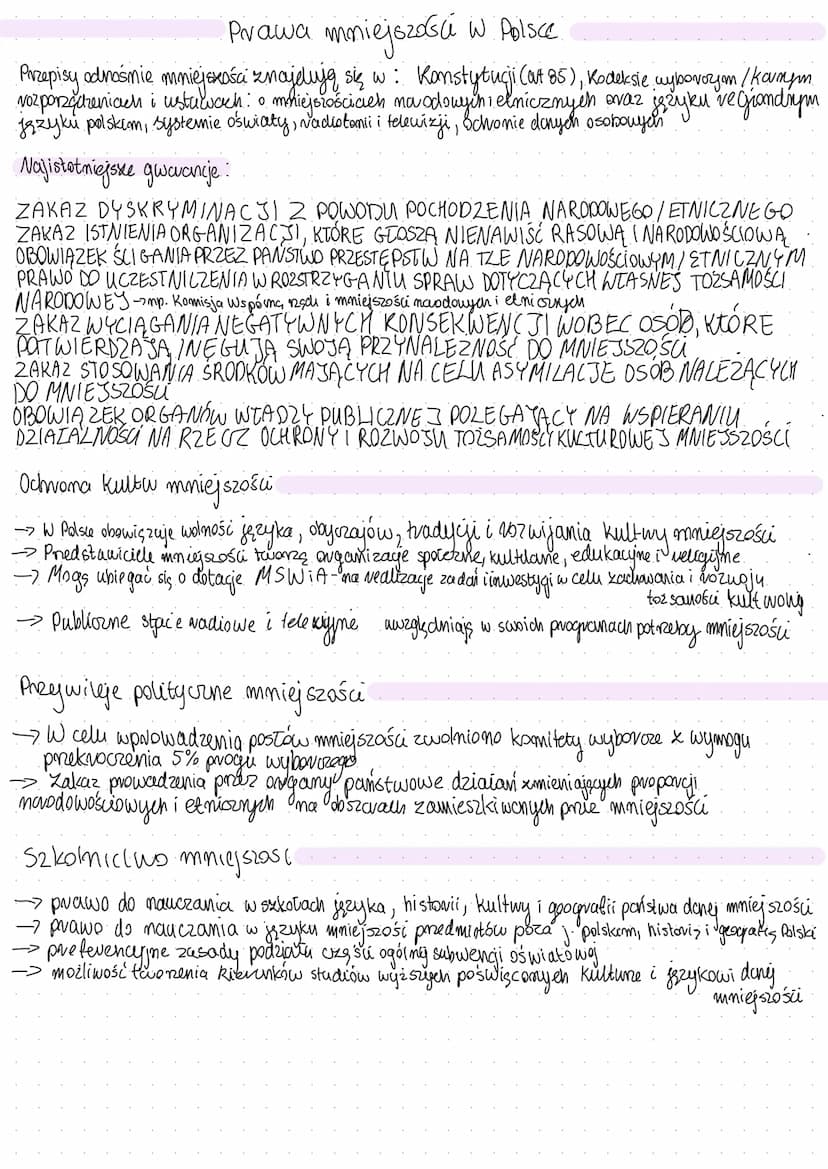 Prawa mniejszości w Polsce
Przepisy odnośnie mniejszości znajdują się w : Konstytucji (art 85), Kodeksie wyborczym / karnym
rozporządzeniach i ustawach: o mniejszościach narodowych i etnicznych oraz języku regionalnym
języku polskim, systemie oświaty, radiofonii i telewizji, ochronie danych osobowych
Najistotniejsze gwarancje :
ZAKAZ DYSKRYMINACJI Z POWODU POCHODZENIA NARODOWEGO / ETNICZNEGO
ZAKAZ ISTNIENIA ORGANIZACJI, KTÓRE GŁOSZĄ NIENAWIŚĆ RASOWĄ I NARODOWOŚCIOWĄ
OBOWIĄZEK ŚCIGANIA PRZEZ PAŃSTWO PRZESTĘPSTW NA TLE NARODOWOŚCIOWYM / ETNICZNYM
PRAWO DO UCZESTNICZENIA W ROZSTRZYGANIU SPRAW DOTYCZĄCYCH WŁASNEJ TOŻSAMOŚCI
NARODOWEJ → np. Komisja Wspólna rządu i mniejszości narodowych i etnicznych
ZAKAZ WYCIĄGANIA NEGATYWNYCH KONSEKWENCJI WOBEC OSÓB, KTÓRE
POTWIERDZAJĄ / NEGUJĄ SWOJĄ PRZYNALEŻNOŚĆ DO MNIEJSZOŚCI
ZAKAZ STOSOWANIA ŚRODKÓW MAJĄCYCH NA CELU ASYMILACJE OSÓB NALEŻĄCYCH
DO MNIEJSZOŚCI
OBOWIĄZEK ORGANÓW WŁADZY PUBLICZNEJ POLEGAJĄCY NA WSPIERANIU
DZIAŁALNOŚCI NA RZECZ OCHRONY I ROZWOJU TOŻSAMOŚCI KULTUROWEJ MNIEJSZOŚCI
Ochrona kultur mniejszości
→ W Polsce obowiązuje wolność języka, obyczajów, tradycji i rozwijania kultury mniejszości
→ Przedstawiciele mniejszości tworzą organizacje społeczne, kulturalne, edukacyjne i religijne
→ Mogą ubiegać się o dotacje MSWiA - na realizacje zadań i inwestycji w celu zachowania i rozwoju
tożsamości kulturowej
→ Publiczne stacje radiowe i telewizyjne uwzględniają w swoich programach potrzeby mniejszości
Przywileje polityczne mniejszości
→ W celu wprowadzenia posłów mniejszości zwolniono komitety wyborcze z wymogu
przekroczenia 5% progu wyborczego
→ Zakaz prowadzenia przez organy państwowe działań zmieniających proporcji
narodowościowych i etnicznych na obszarach zamieszkiwanych prze mniejszości
Szkolnictwo mniejszośc
→ prawo do nauczania w szkołach języka, historii, kultury i geografii państwa danej mniejszości
→ prawo do nauczania w języku mniejszość przedmiotów poza j. polskim, historią i geografią Polski
→ preferencyjne zasady podziału części ogólnej subwencji oświatowej
→ możliwość tworzenia kierunków studiów wyższych poświęconych kulturze i językowi danej
mniejszości